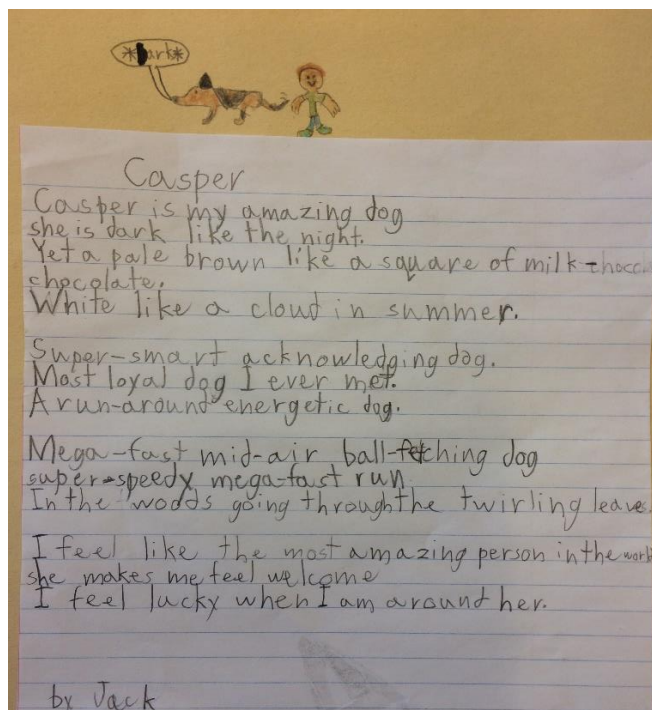 *Bark*
Casper
Casper is my amazing dog
she is dark like the night.
Yet a pale brown like a square of milk-
chocolate.
White like a cloud in summer.
Super-smart acknowledging dog.
Most loyal dog I ever met.
A run-around energetic dog.
Mega-fast mid-air ball-fetching dog
super-speedy mega-fast run
In the woods going through the twirling leaves
I feel like the most amazing person in the world
she makes me feel welcome
I feel lucky when I am around her.
by Jack